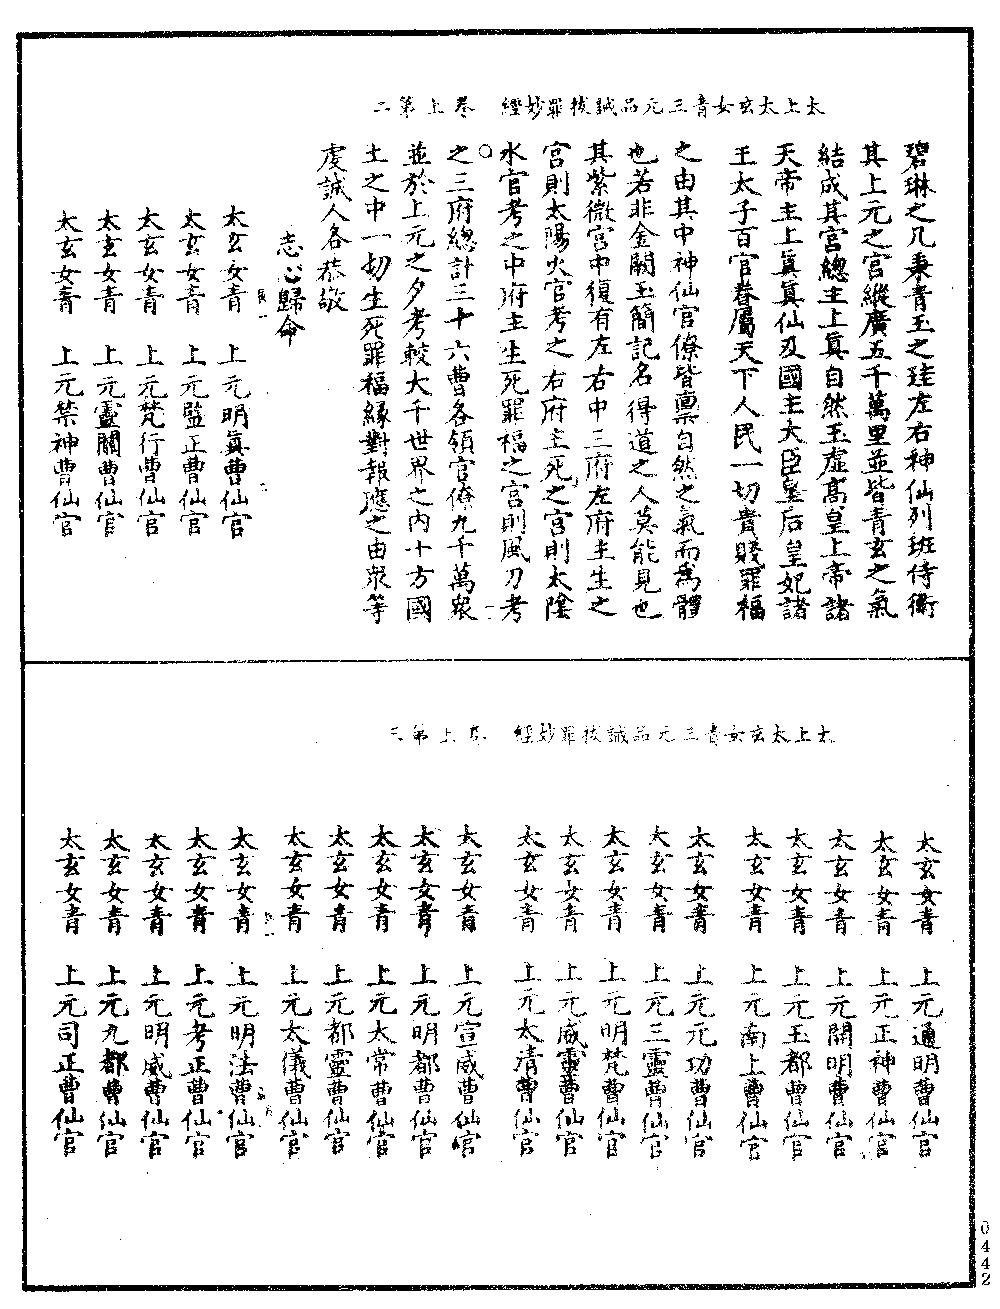 太上太玄女青三元品誡拔罪妙經　卷上第二
碧琳之几秉青玉之珪左右神仙列班侍衛
其上元之宮縱廣五千萬里並皆青玄之氣
結成其宮總主上真自然玉虛高皇上帝諸
天帝主上眞眞仙及國主大臣皇后皇妃諸
王太子百官眷屬天下人民一切貴賤罪福
之由其中神仙官僚皆禀自然之氣而爲體
也若非金闕玉簡記名得道之人莫能見也
其紫微宮中復有左右中三府左府主生之
宮則太陽火官考之右府主死之宮則太陰
水官考之中府主生死罪福之宮則風刀考
之三府總計三十六曹各領官僚九千萬衆
並於上元之夕考較大千世界之內十方國
土之中一切生死罪福緣對報應之由衆等
虔誠人各恭敬
志心歸命
太玄女青　上元明眞曹仙官
太玄女青　上元監正曹仙官
太玄女青　上元梵行曹仙官
太玄女青　上元靈關曹仙官
太玄女青　上元禁神曹仙官
太上太玄女青三元品誡拔罪妙經　卷上第三
太玄女青　上元通明曹仙官
太玄女青　上元正神曹仙官
太玄女青　上元開明曹仙官
太玄女青　上元玉都曹仙官
太玄女青　上元南上曹仙官
太玄女青　上元元功曹仙官
太玄女青　上元三靈曹仙官
太玄女青　上元明梵曹仙官
太玄女青　上元威靈曹仙官
太玄女青　上元太清曹仙官
太玄女青　上元宣威曹仙官
太玄女青　上元明都曹仙官
太玄女青　上元太常曹仙官
太玄女青　上元都靈曹仙官
太玄女青　上元太儀曹仙官
太玄女青　上元明法曹仙官
太玄女青　上元考正曹仙官
太玄女青　上元明威曹仙官
太玄女青　上元九都曹仙官
太玄女青　上元司正曹仙官
0442